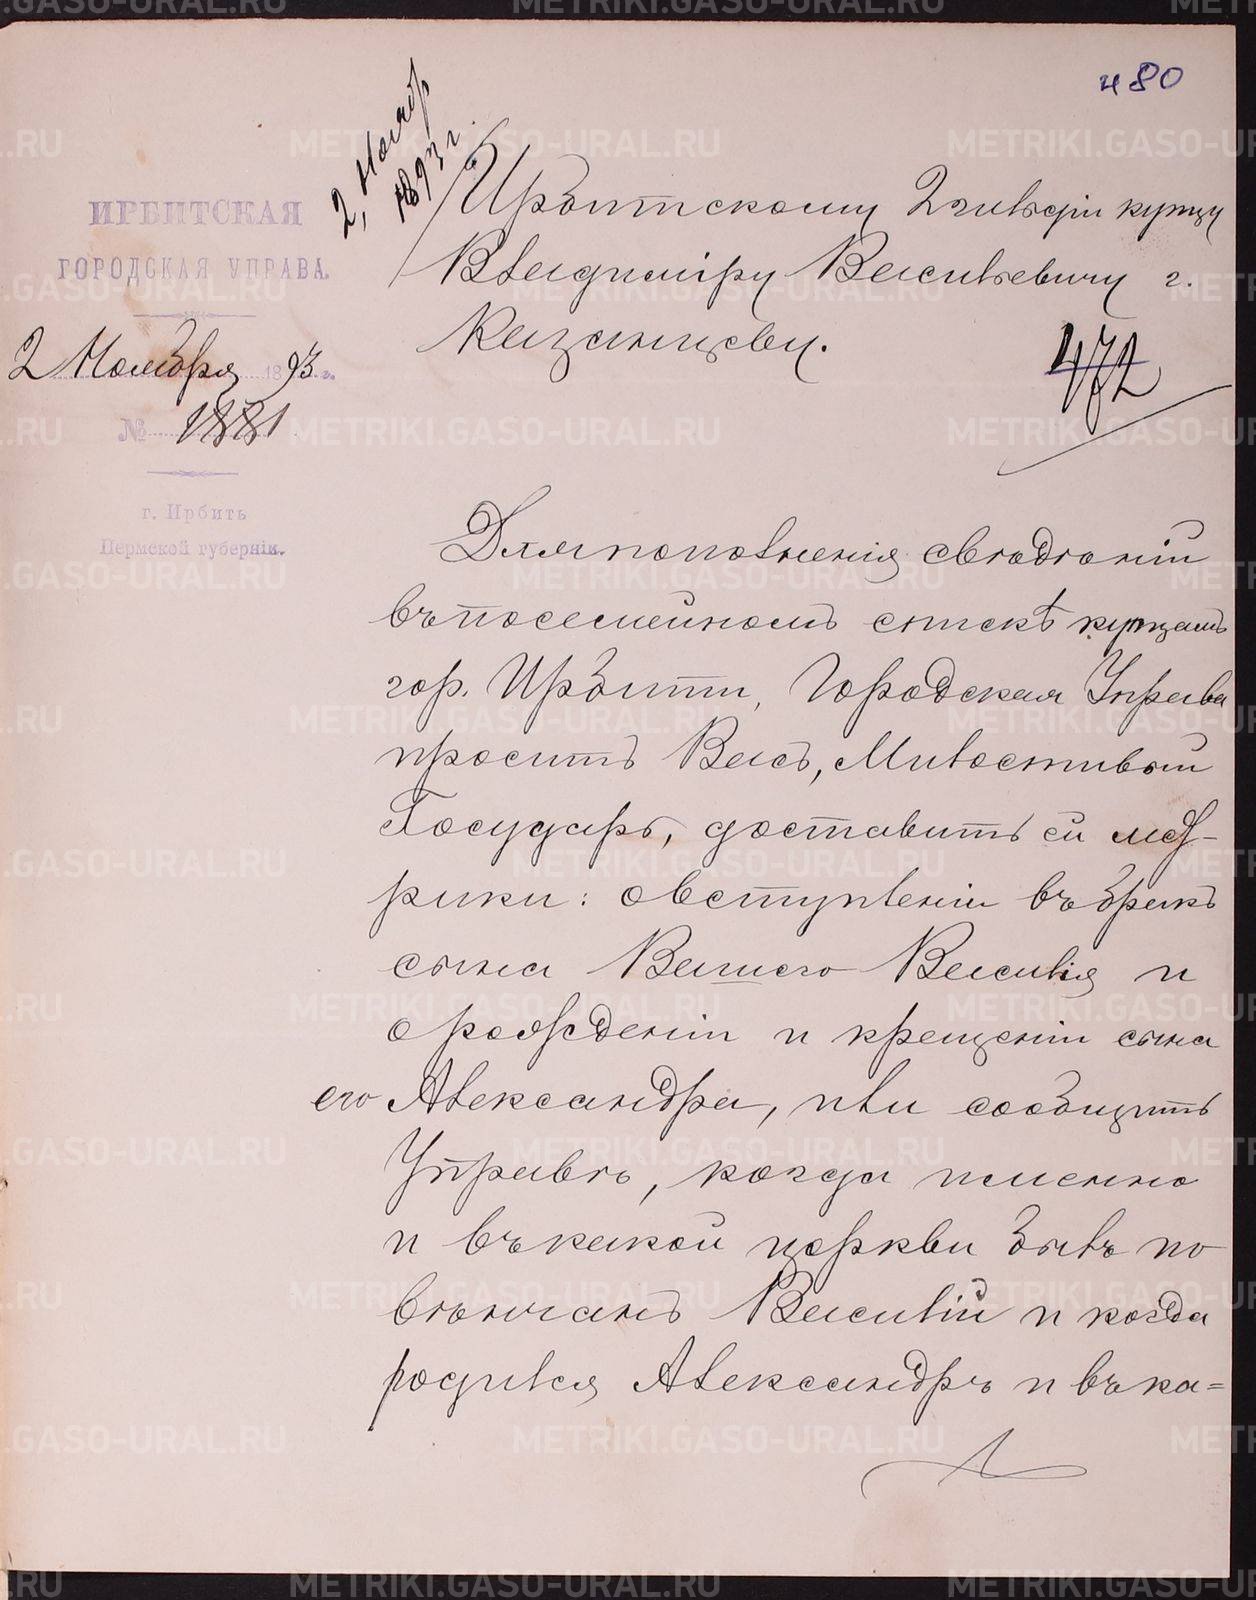 480
2, Ноябр
1893 г.
ИРБИТСКАЯ
ГОРОДСКАЯ УПРАВА.
2 Ноября 1893 г.
№ 1881
г. Ирбить
Пермской губерніи.
Ирбитскому 2 гильдіи купцу
Владиміру Васильевичу г.
Казанцеву.
472
Для пополненія свѣдѣній
въ посемейномъ спискѣ купцамъ
гор. Ирбити, Городская Управа
проситъ Васъ, Милостивый
Государь, доставить ей мет-
рики: о вступленіи въ бракъ
сына Вашего Василія и
о рожденіи и крещеніи сына
его Александра, или сообщить
Управѣ, когда именно
и въ какой церкви былъ по
вѣнчанъ Василій и когда
родился Александръ и въ ка=
METRIKI.GASO-URAL.RU